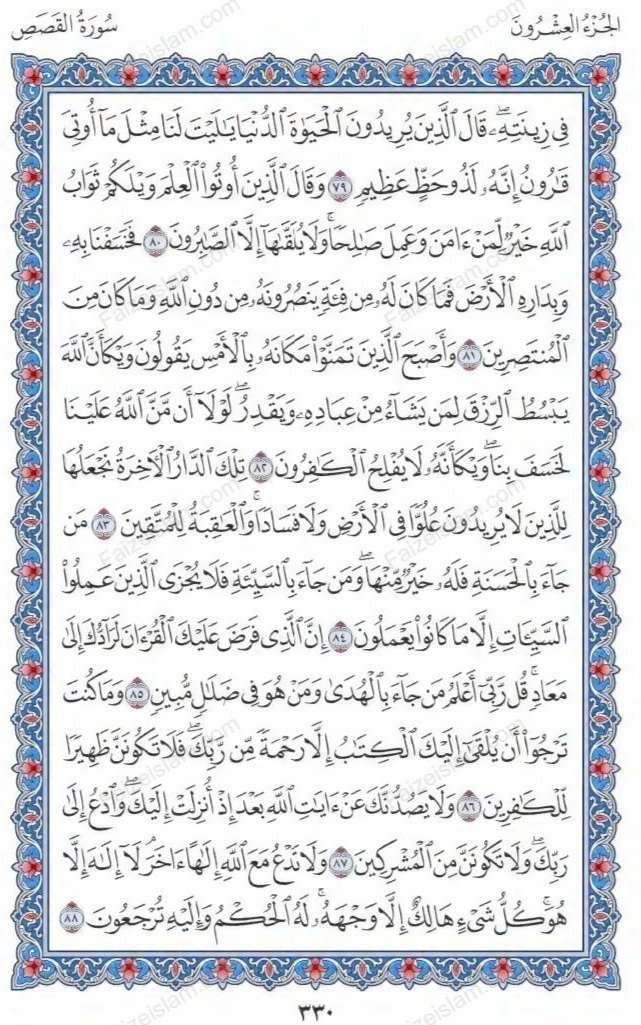 الجُزْءُ العِشْرُونَ
سُورَةُ القَصَصِ
فِي زِينَتِهِۦۖ قَالَ ٱلَّذِينَ يُرِيدُونَ ٱلْحَيَوٰةَ ٱلدُّنْيَا يَٰلَيْتَ لَنَا مِثْلَ مَآ أُوتِىَ
قَٰرُونُ إِنَّهُۥ لَذُو حَظٍّ عَظِيمٍ ٧٩ وَقَالَ ٱلَّذِينَ أُوتُوا۟ ٱلْعِلْمَ وَيْلَكُمْ ثَوَابُ
ٱللَّهِ خَيْرٌ لِّمَنْ ءَامَنَ وَعَمِلَ صَٰلِحًا وَلَا يُلَقَّىٰهَآ إِلَّا ٱلصَّٰبِرُونَ ٨٠ فَخَسَفْنَا بِهِۦ
وَبِدَارِهِ ٱلْأَرْضَ فَمَا كَانَ لَهُۥ مِن فِئَةٍ يَنصُرُونَهُۥ مِن دُونِ ٱللَّهِ وَمَا كَانَ مِنَ
ٱلْمُنتَصِرِينَ ٨١ وَأَصْبَحَ ٱلَّذِينَ تَمَنَّوْا۟ مَكَانَهُۥ بِٱلْأَمْسِ يَقُولُونَ وَيْكَأَنَّ ٱللَّهَ
يَبْسُطُ ٱلرِّزْقَ لِمَن يَشَآءُ مِنْ عِبَادِهِۦ وَيَقْدِرُۖ لَوْلَآ أَن مَّنَّ ٱللَّهُ عَلَيْنَا
لَخَسَفَ بِنَاۖ وَيْكَأَنَّهُۥ لَا يُفْلِحُ ٱلْكَٰفِرُونَ ٨٢ تِلْكَ ٱلدَّارُ ٱلْءَاخِرَةُ نَجْعَلُهَا
لِلَّذِينَ لَا يُرِيدُونَ عُلُوًّا فِى ٱلْأَرْضِ وَلَا فَسَادًاۚ وَٱلْعَٰقِبَةُ لِلْمُتَّقِينَ ٨٣ مَن
جَآءَ بِٱلْحَسَنَةِ فَلَهُۥ خَيْرٌ مِّنْهَاۖ وَمَن جَآءَ بِٱلسَّيِّئَةِ فَلَا يُجْزَى ٱلَّذِينَ عَمِلُوا۟
ٱلسَّيِّـَٔاتِ إِلَّا مَا كَانُوا۟ يَعْمَلُونَ ٨٤ إِنَّ ٱلَّذِى فَرَضَ عَلَيْكَ ٱلْقُرْءَانَ لَرَآدُّكَ إِلَىٰ
مَعَادٍۚ قُل رَّبِّىٓ أَعْلَمُ مَن جَآءَ بِٱلْهُدَىٰ وَمَنْ هُوَ فِى ضَلَٰلٍ مُّبِينٍ ٨٥ وَمَا كُنتَ
تَرْجُوٓا۟ أَن يُلْقَىٰٓ إِلَيْكَ ٱلْكِتَٰبُ إِلَّا رَحْمَةً مِّن رَّبِّكَۖ فَلَا تَكُونَنَّ ظَهِيرًا
لِّلْكَٰفِرِينَ ٨٦ وَلَا يَصُدُّنَّكَ عَنْ ءَايَٰتِ ٱللَّهِ بَعْدَ إِذْ أُنزِلَتْ إِلَيْكَۖ وَٱدْعُ إِلَىٰ
رَبِّكَۖ وَلَا تَكُونَنَّ مِنَ ٱلْمُشْرِكِينَ ٨٧ وَلَا تَدْعُ مَعَ ٱللَّهِ إِلَٰهًا ءَاخَرَۘ لَآ إِلَٰهَ إِلَّا
هُوَۚ كُلُّ شَىْءٍ هَالِكٌ إِلَّا وَجْهَهُۥۚ لَهُ ٱلْحُكْمُ وَإِلَيْهِ تُرْجَعُونَ ٨٨
٣٣٠
Faizeislam.com